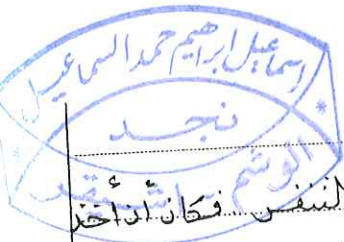 اسماعيل ابراهيم حمد السماعيل
نجد
الوشم - اشيقر
لنفس فكان أن أخذ